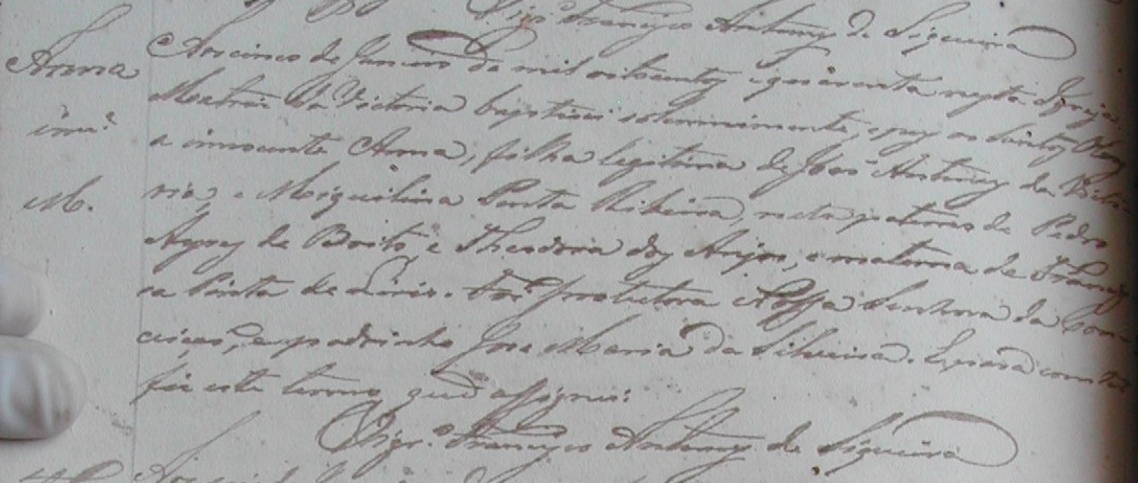 Vigrº Francisco Antunes de Siqueira
Anna
Aos cinco de Janeiro de mil oitocentos e quarenta nesta Igreja
Matriz da Victoria baptisei solemnimente, e puz os Santos Oleos
innº
a innocente Anna, filha legitima de João Antunes da Victo-
M.
ria, e Miquilina Pinta Ribeira, neta paterna de Pedro
Ayres de Brito e Theodora dos Anjos, e materna de Francis-
ca Pinta de . Foi protectora Nossa Senhora da Con-
ceição, e padrinho Jose Maria da Silveira. E para constar
fiz este termo, que assignei.
Vigrº Francisco Antunes de Siqueira